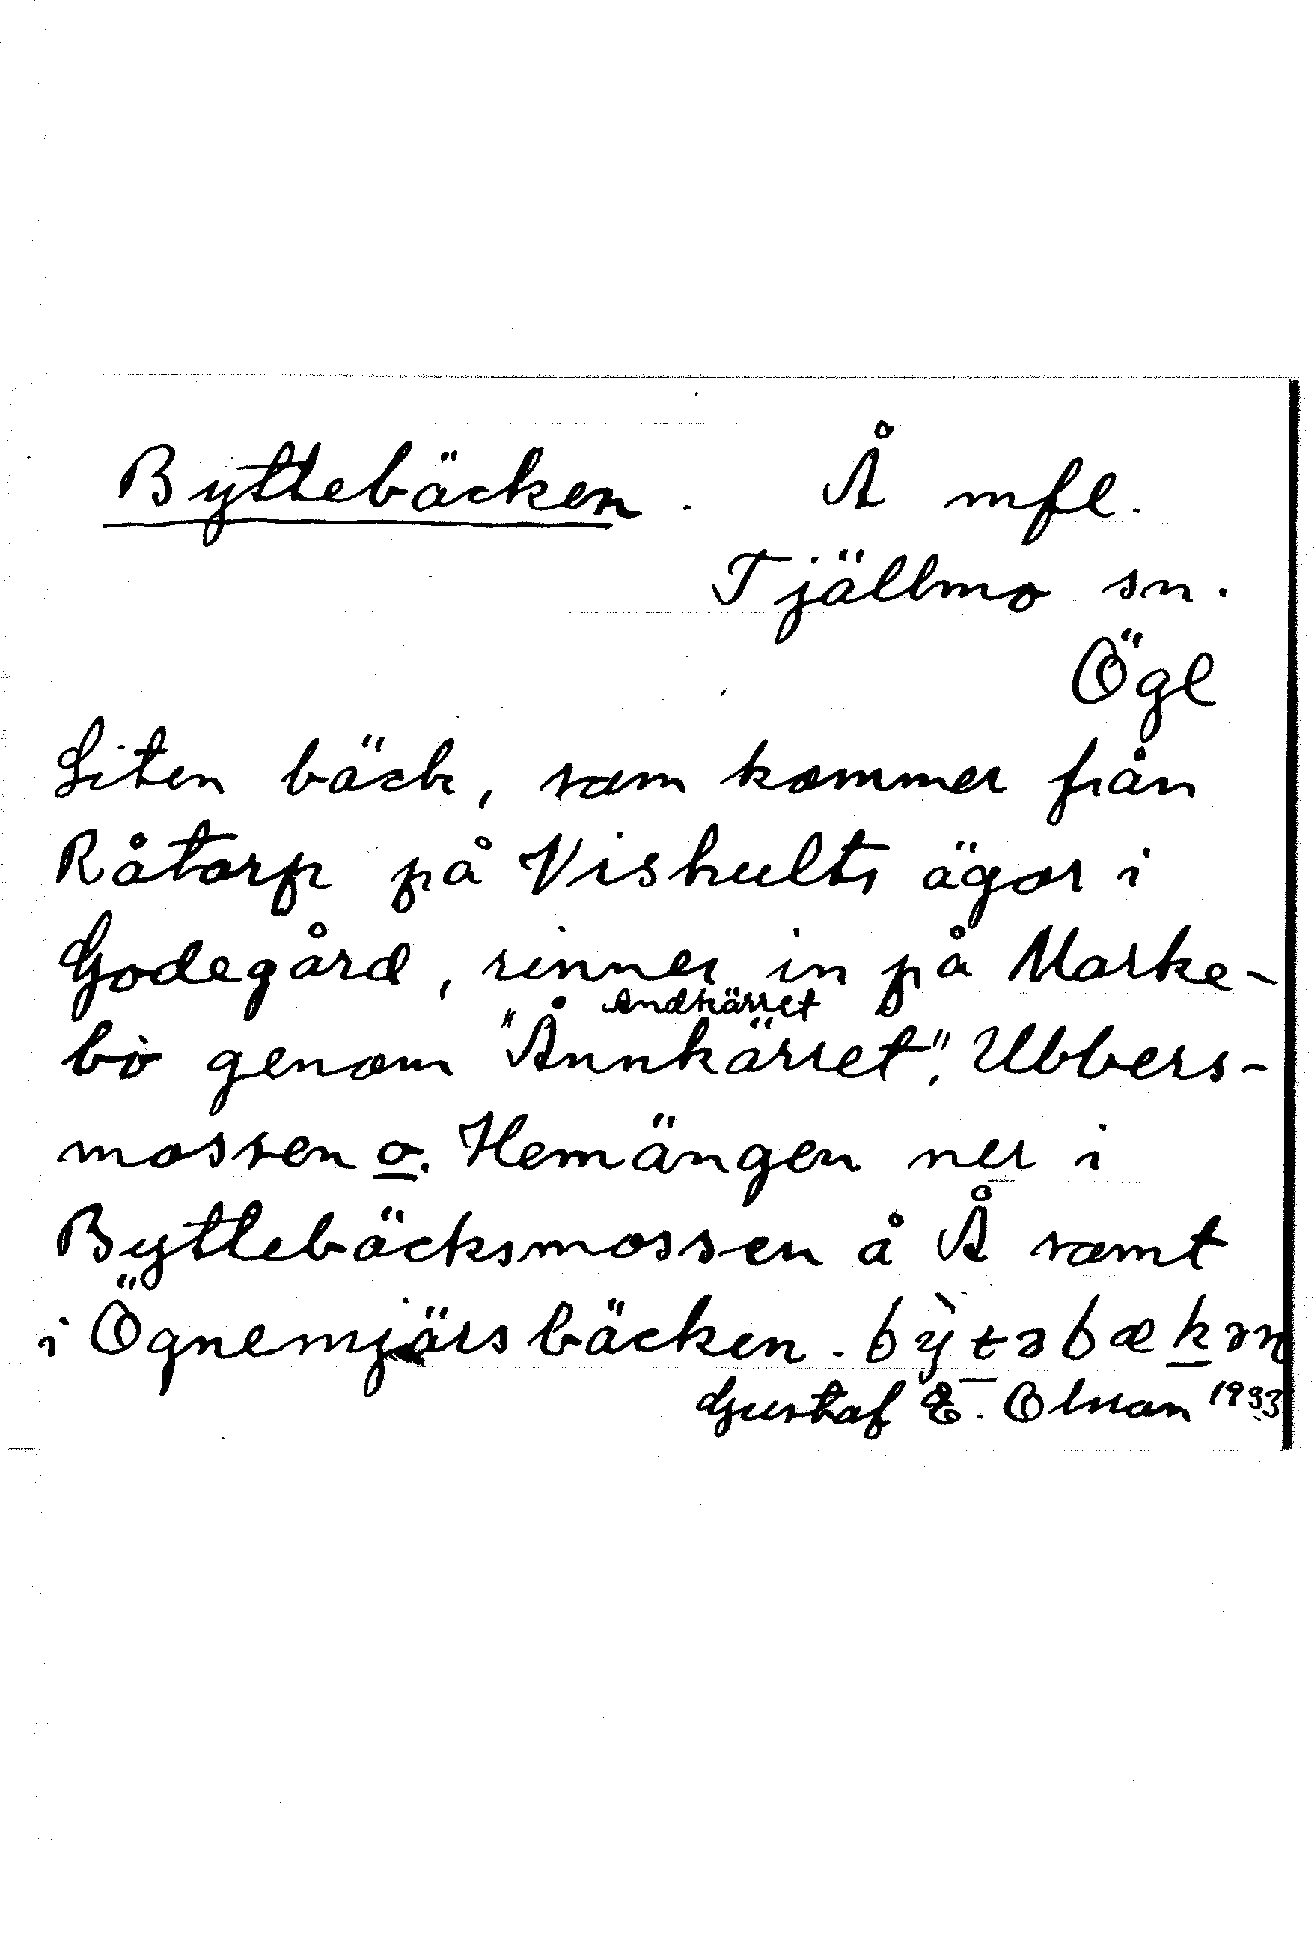 Byttebäcken. Å mfl.
Tjällmo sn.
Ögl
Liten bäck, som kommer från
Råtorp på Vishults ägor i
Godegård, rinner in på Marke-
Andkärret
bo genom "Ånnkärret", Ubbers-
mossen o. Hemängen ner i
Byttebäcksmossen å Å samt
i Ögnemjärsbäcken. bỳtəbækən
Gustaf E. Olsson 1933